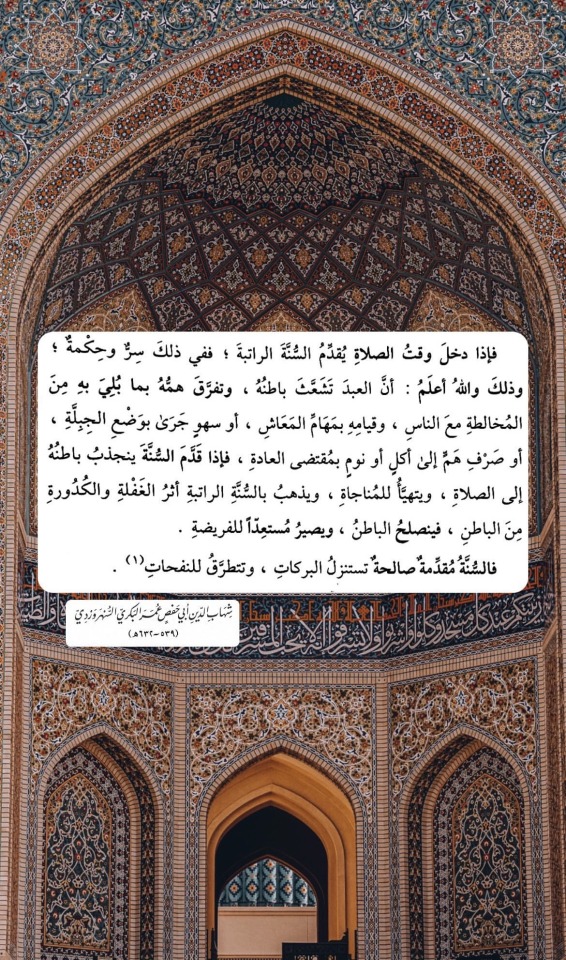 فإذا دخلَ وقتُ الصلاةِ يُقدِّمُ السُّنَّةَ الراتبةَ ؛ ففي ذلكَ سِرٌّ وحِكْمةٌ ؛
وذلكَ واللهُ أعلَمُ : أنَّ العبدَ تَشَعَّثَ باطنُهُ ، وتفرَّقَ همُّهُ بما بُلِيَ بهِ مِنَ
المُخالطةِ معَ الناسِ ، وقيامِهِ بمَهَامِّ المَعَاشِ ، أو سهوٍ جَرَىٰ بوَضْعِ الجِبِلَّةِ ،
أو صَرْفِ هَمٍّ إلىٰ أكلٍ أو نومٍ بمُقتضى العادةِ ، فإذا قَدَّمَ السُّنَّةَ ينجذبُ باطنُهُ
إلى الصلاةِ ، ويتهيَّأُ للمُناجاةِ ، ويذهبُ بالسُّنَّةِ الراتبةِ أثرُ الغَفْلةِ والكُدُورةِ
مِنَ الباطنِ ، فينصلحُ الباطنُ ، ويصيرُ مُستعِدّاً للفريضةِ .
فالسُّنَّةُ مُقدِّمةٌ صالحةٌ تستنزلُ البركاتِ ، وتتطرَّقُ للنفحاتِ(١) .
شِهَابُ الدِّينِ أَبِي حَفْصٍ عُمَرَ البَكْرِيِّ السُّهْرَوَرْدِيّ
(٥٣٩-٦٣٢هـ)